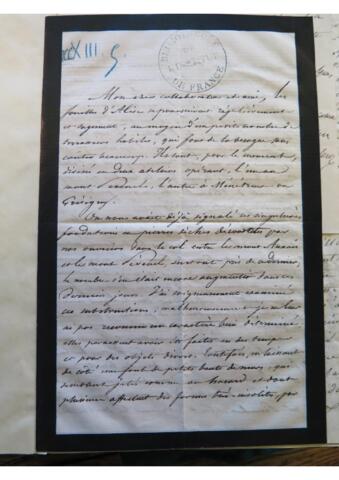 XIII 5.
BIBLIOTHÈQUE
DE FRANCE
Mon cher collaborateur et ami, les
fouilles d'Alise se poursuivent régulièrement
et sagement, au moyen d'un petit nombre de
terrassiers habiles, qui font de la besogne sans
causer beaucoup. Ils sont, pour le moment,
divisés en deux ateliers opérant, l'un au
mont Pévenel, l'autre à Ménétreux-le
Pitois
On nous avait déjà signalé ces singulières
fondations en pierres sèches découvertes par
nos ouvriers dans le col entre le mont Auxois
et le mont Pévenel, sur tout près de
le nombre s'en était encore augmenté dans ces
derniers jours. J'ai soigneusement examiné
ces substructions; malheureusement je n'ai
pu reconnaître un caractère bien déterminé.
elles paraissent avoir été faites en des temps
et pour des objets divers. Toutefois, en laissant
de côté une foule de petits bouts de murs, qui
semblent jetés comme au hasard et dont
plusieurs affectent des formes très-insolites, par